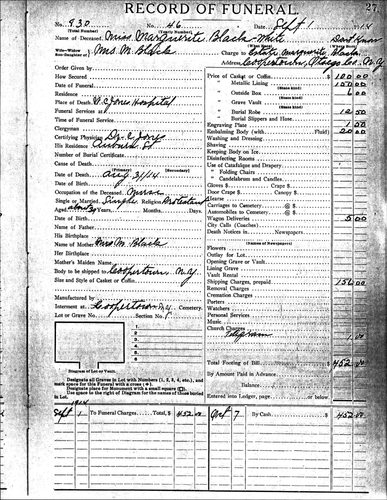 RECORD OF FUNERAL. 27
No. 930 No. 46 Date Sept 1 1914
Name of Deceased Miss Marguerite Black White
Mrs. M. Black Charge to Estate Marguerite Black
Address Cooperstown, Otsego Co. N.Y
Order Given by
How Secured
Date of Funeral
Residence
Place of Death Hospital
Funeral Services at
Time of Funeral Service
Clergyman
Certifying Physician Dr. E. Jones
His Residence Auburn St
Number of Burial Certificate
Cause of Death
(Primary) (Secondary)
Date of Death Aug 31/14
Date of Birth
Occupation of the Deceased Nurse
Single or Married Single Religion Protestant
Aged Years, Months, Days.
Date of Birth
Name of Father
His Birthplace
Name of Mother Mrs M. Black
Her Birthplace
Mother's Maiden Name
Body to be shipped to Cooperstown N.Y
Size and Style of Casket or Coffin
Manufactured by
Interment at Cooperstown N.Y. Cemetery.
Lot or Grave No. Section No.
1
2
3
4
5
Diagram of Lot or Vault.
Designate all Graves in Lot with Numbers (1, 2, 3, 4, etc.), and
mark space for this Funeral with a cross (+).
Designate place for Monument with a small square
The space to the right of Diagram for the names of those buried
in Lot.
Price of Casket or Coffin 100 00
" Metallic Lining 100 00
" Outside Box 6 00
" Grave Vault
" Burial Robe 12 50
" Burial Slippers and Hose
Engraving Plate 1 50
Embalming Body (with Fluid) 20 00
Washing and Dressing
Shaving
Keeping Body on Ice
Disinfecting Rooms
Use of Catafalque and Drapery
" Folding Chairs
" Candelabrum and Candles
Gloves $ Crape $
Door Crape $ Candles $
Hearse
Carriages to Cemetery @ $
Automobiles to Cemetery @ $
Wagon Deliveries 5 00
City Calls (Coaches)
Death Notices in Newspapers
(Names of Newspapers)
Flowers
Outlay for Lot
Opening Grave or Vault
Lining Grave
Vault Rental
Shipping Charges, prepaid 156 00
Removal Charges
Cremation Charges
Porters
Watchers
Personal Services
Music
Church Charges
Total Footing of Bill
By Amount Paid in Advance
Balance
Entered into Ledger, page or below.
1914
Sept 1 To Funeral Charges Total, $ Oct 7 By Cash $